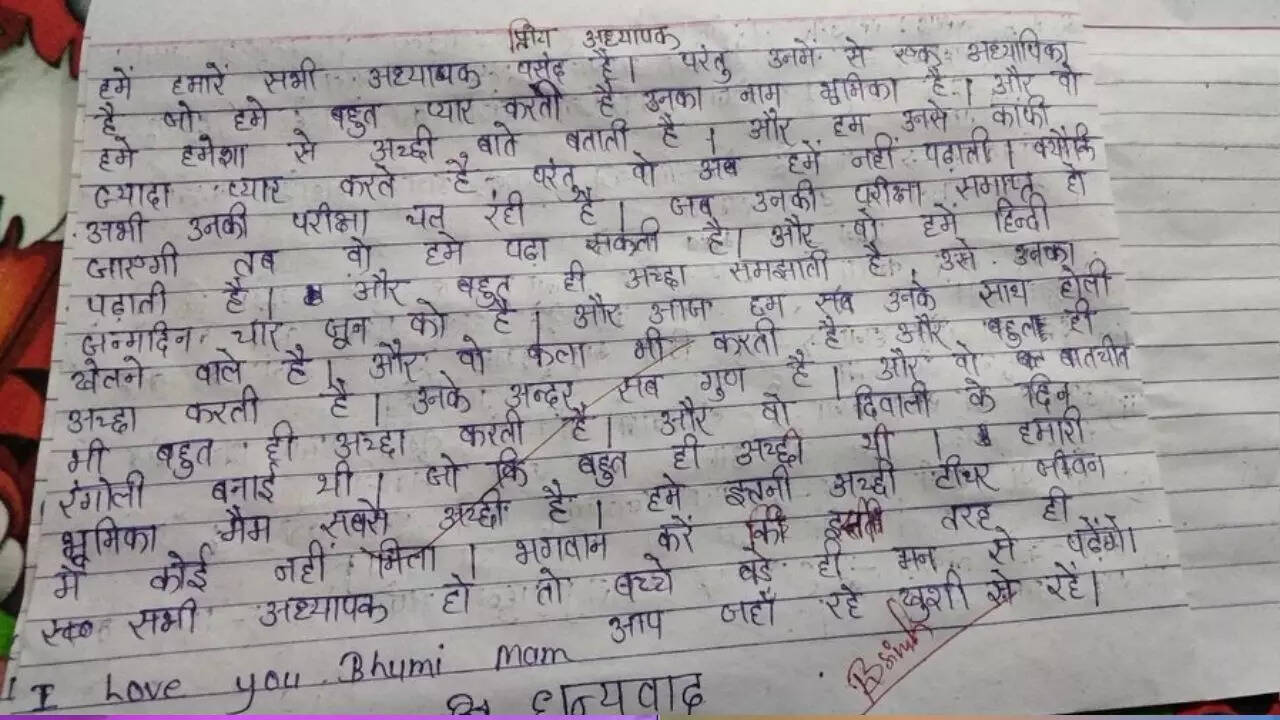 प्रिय अध्यापक
हमें हमारें सभी अध्यापक पसंद है। परंतु उनमें से एक अध्यापिका
है जो हमे बहुत प्यार करती है उनका नाम भुमिका है। और वो
हमे हमेशा से अच्छी बाते बताती है। और हम उनसे काफी
ज्यादा प्यार करते है परंतु वो अब हमें नहीं पढ़ाती। क्योंकि
अभी उनकी परीक्षा चल रही है। जब उनकी परीक्षा समाप्त हो
जाएगी तब वो हमे पढ़ा सकती है। और वो हमें हिन्दी
पढ़ाती है। और बहुत ही अच्छा समझाती है उसे उनका
जन्मदिन चार जून को है। और आज हम सब उनके साथ होली
खेलने वाले है। और वो कला भी करती है और बहुत ही
अच्छा करती है। उनके अन्दर सब गुण है। और वो बातचीत
भी बहुत ही अच्छा करती है। और वो दिवाली के दिन
रंगोली बनाई थी। जो कि बहुत ही अच्छी थी। हमारी
भूमिका मैम सबसे अच्छी है। हमे इतनी अच्छी टीचर जीवन
में कोई नही मिला। भगवान करें की इसी तरह ही
सभी अध्यापक हो तो बच्चे बड़े ही मन से पढ़ेंगे।
आप जहाँ रहे खुशी से रहें।
I Love you Bhumi Mam
धन्यवाद